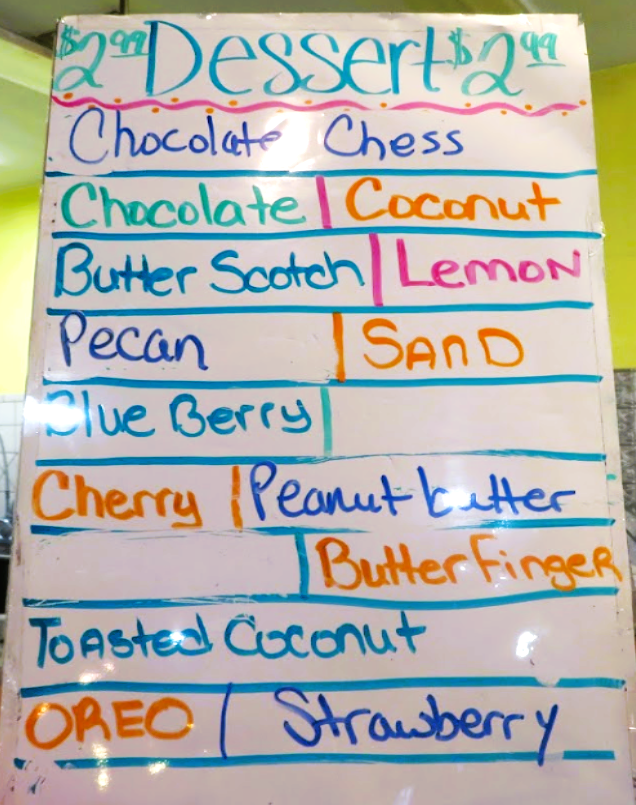 $2.99 Dessert $2.99
Chocolate Chess
Chocolate | Coconut
Butter Scotch | Lemon
Pecan | SAND
Blue Berry |
Cherry | Peanut butter
| Butterfinger
Toasted Coconut
OREO / Strawberry